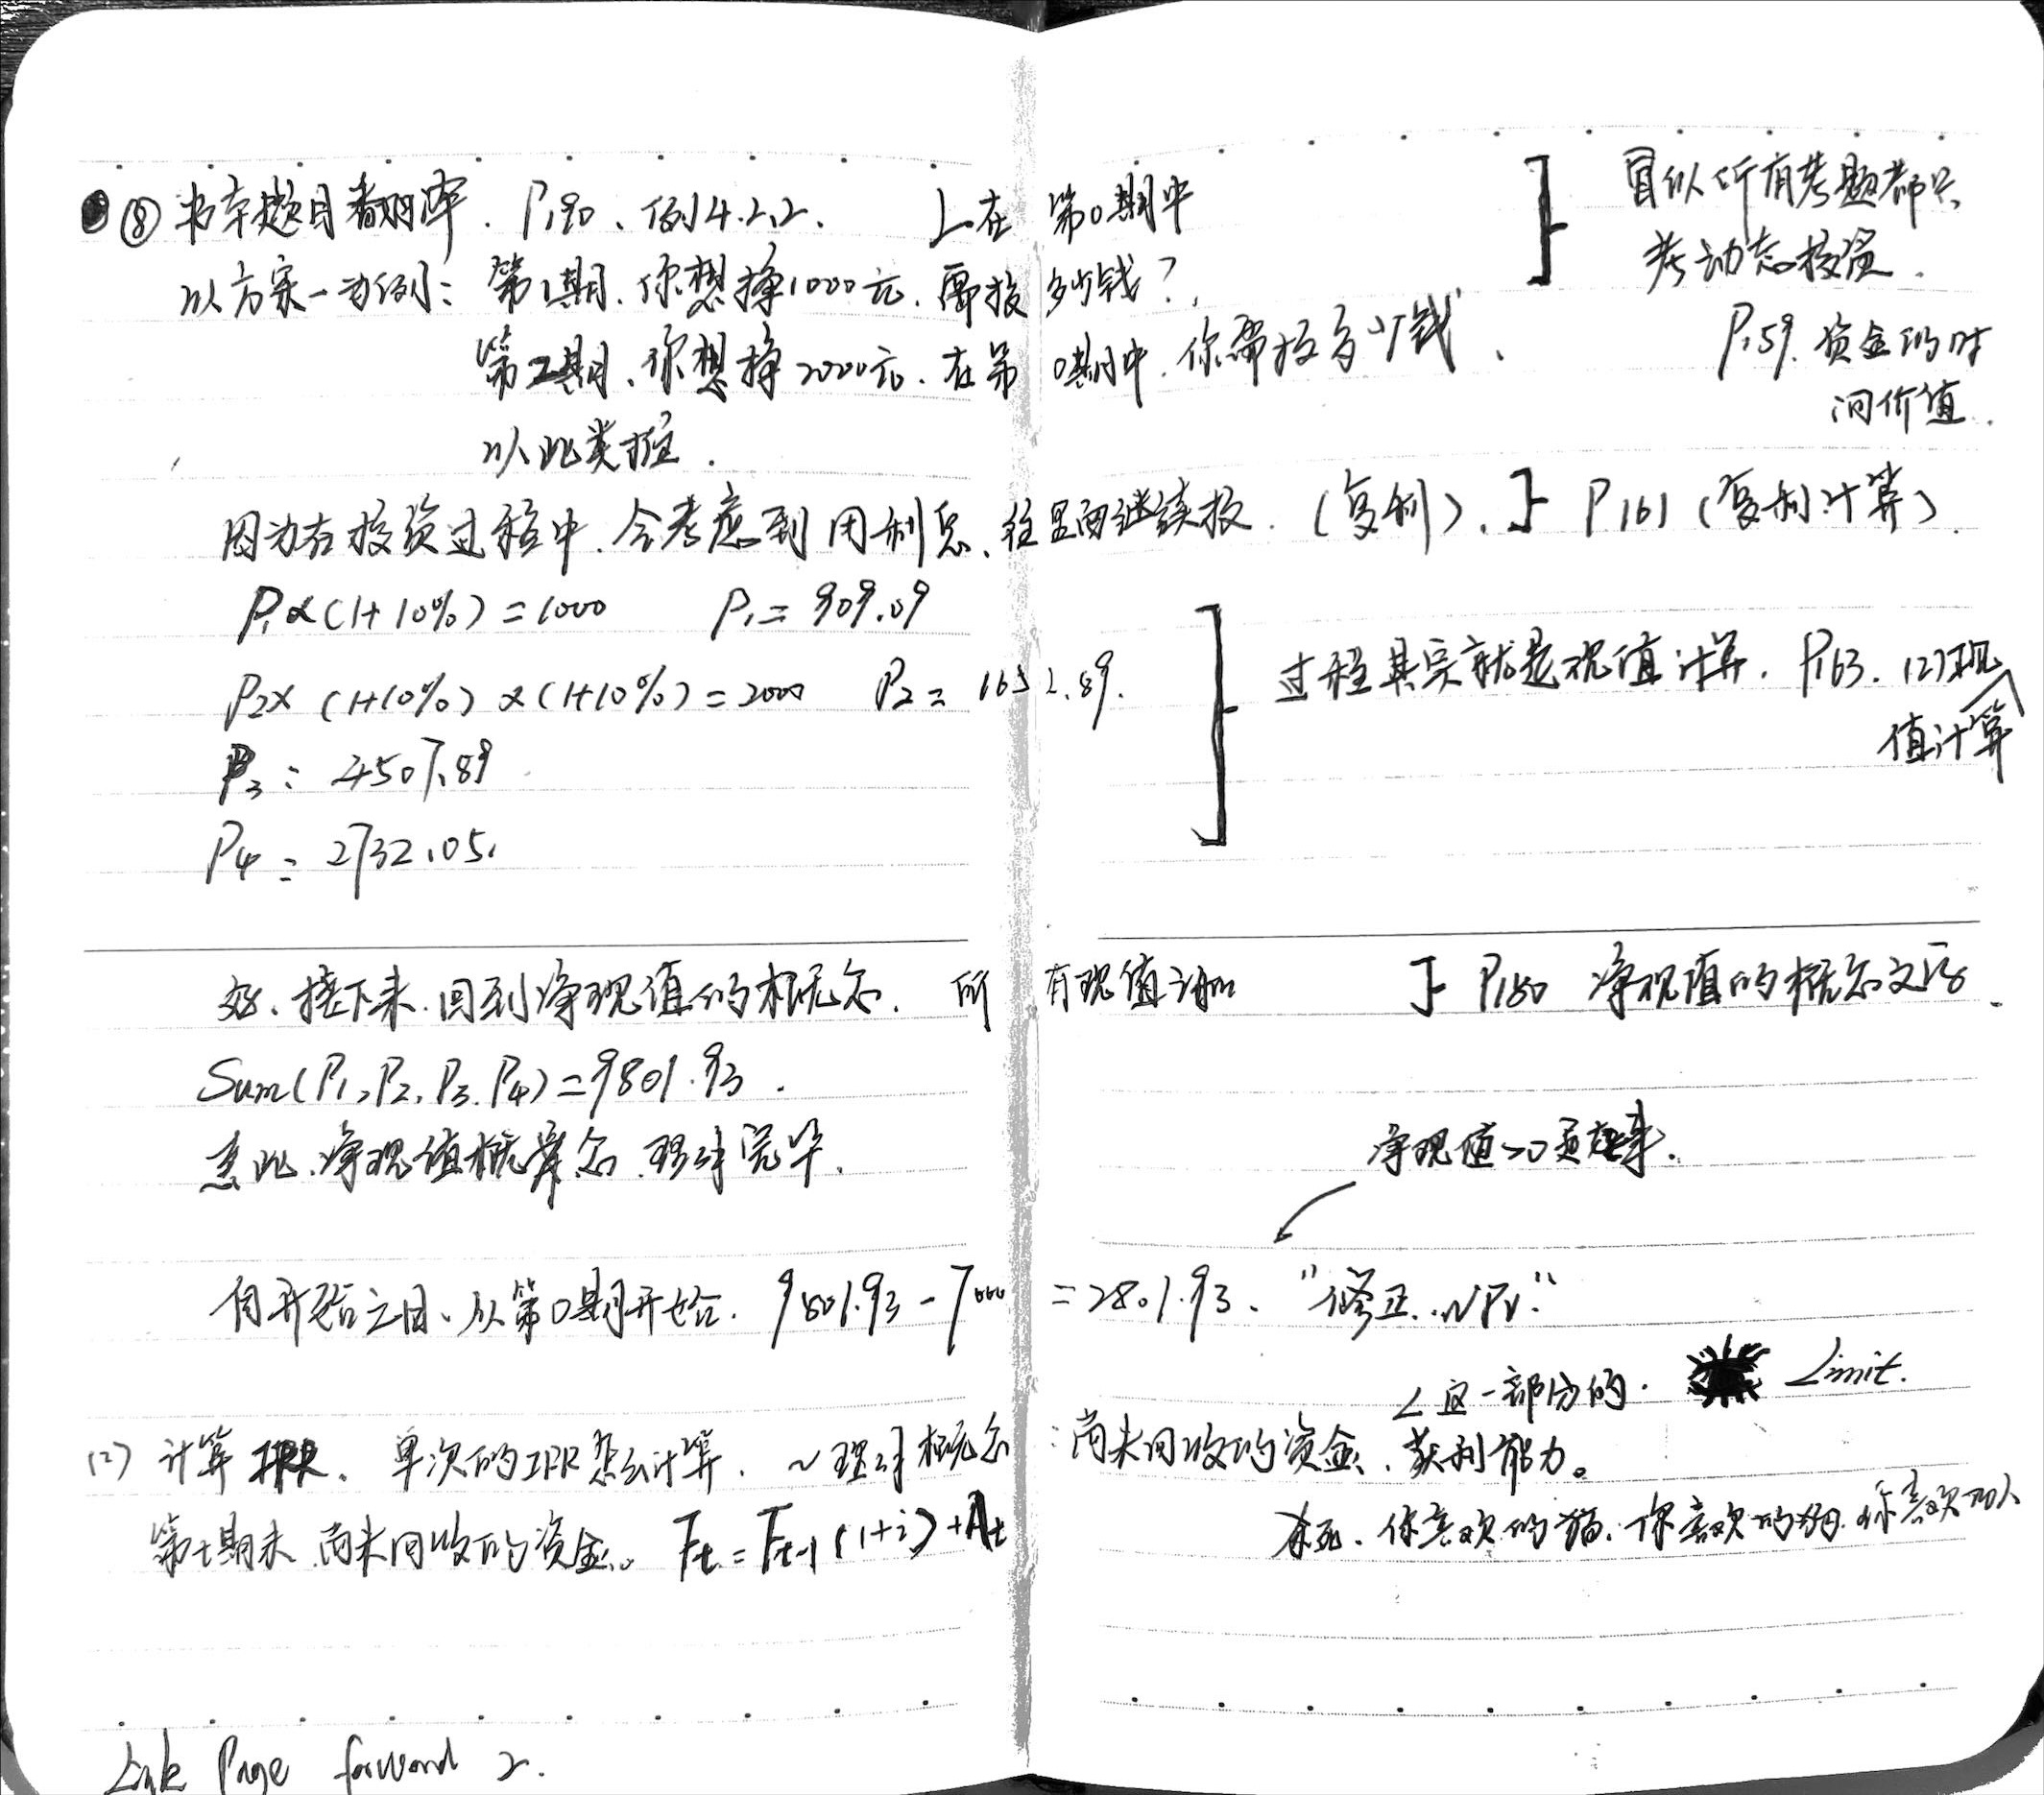 ⑧ 书本题目翻译. P190、例4.2.2. 在第0期中
以方案一为例: 第1期、你想挣1000元. 需投多少钱?
第2期、你想挣2000元. 在第0期中. 你需投多少钱.
以此类推.
冒似所有考题都只
考动态投资.
P159. 资金的时
间价值.
因为在投资过程中. 会考虑到用利息、往里面继续投. (复利). P.161 (复利计算).
P₁×(1+10%)=1000 P₁=909.09
P₂×(1+10%)×(1+10%)=2000 P₂=1652.89.
P₃=4507.89
P₄=2732.05.
过程其实就是现值计算. P163. (2)现
值计算
好、接下来. 回到净现值的概念. 所有现值 P180 净现值的概念
Sum(P₁,P₂,P₃,P₄)=9801.93.
至此、净现值概念、理解完毕.
净现值
自开始之日、从第0期开始. 9801.93-7000=2801.93. "修正.NPV."
这一部分的. Limit.
(2) 计算IRR. 单次的IRR怎么计算. ~理解概念: 尚未回收的资金、获利能力。
第t期末. 尚未回收的资金. Fₜ=Fₜ₋₁(1+i)+Aₜ
你喜欢的猫. 你喜欢的狗. 你喜欢的人
Link Page forward 2.